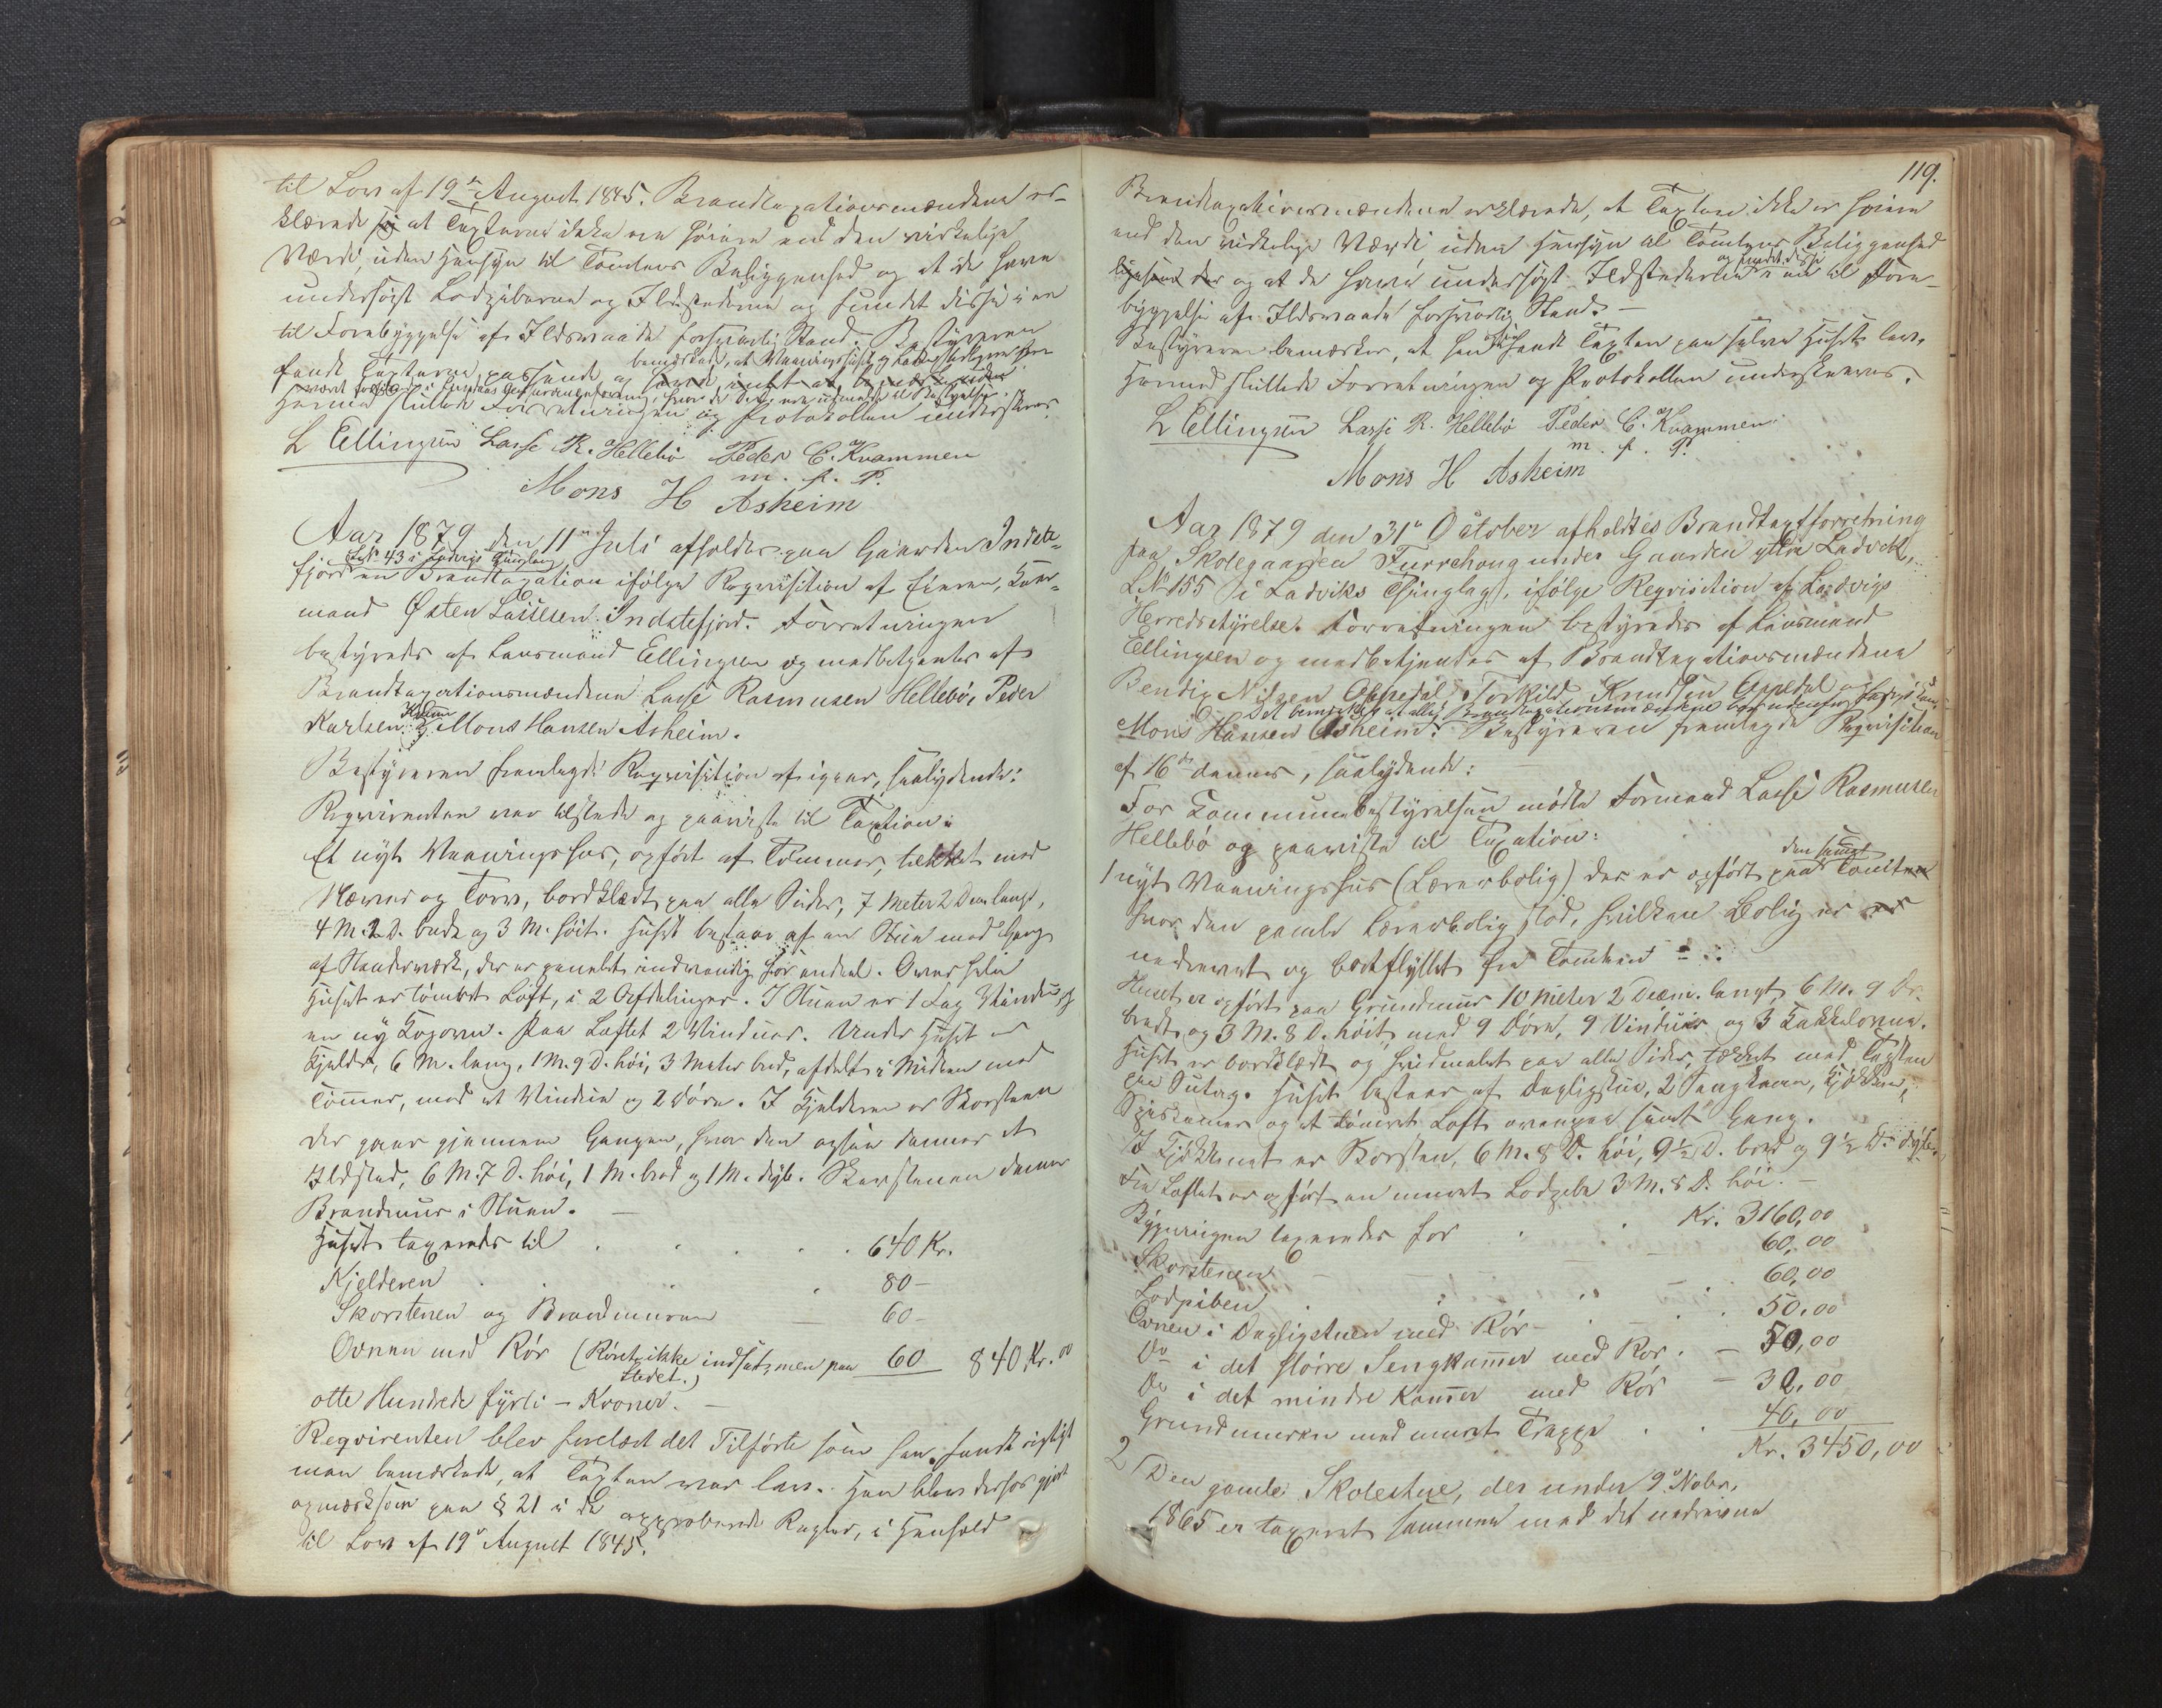 til Lov af 19de August 1845. Brandtaxationsmændene er-
klærede at Taxterne ikke ere høiere end den virkelige
Værdi, uden Hensyn til Tomtens Beliggenhed og at de have
undersøgt Lodpiberne og Ildstederne og fundet disse i en
til Forebyggelse af Ildsvaade forsvarlig Stand. Bestyreren
fandt Taxterne passende og
bemærkede, at Vaaningshuset og
været i
Hermed sluttede Forretningen og Protokollen underskrives
L Ellingsen Lasse R. Hellebø Peder C. Kvammen
m. p. P.
Mons H Asheim
Aar 1879 den 11te Juli afholdes paa Gaarden Indste-
LNo 43 i Ladvigs Thinglag
fjord en Brandtaxation ifølge Reqvisition af Eieren, Gaar-
mand Østen Lassesen Indstefjord. Forretningen
bestyredes af Lensmand Ellingsen og medbetjentes af
Brandtaxationsmændene Lasse Rasmusen Hellebø, Peder
Karlsen Kvamme og Mons Hansen Asheim.
Bestyreren fremlagde Reqvisition af igaar, saalydende:
Reqvirenten var tilstede og paaviste til Taxtion:
Et nyt Vaaningshus, opført af Tømmer, tækket med
Næver og Torv, bordklædt paa alle Sider, 7 Meter 2 Dem langt,
4 M. 2 D. bredt og 3 M. høit. Huset bestaar af en Stue med Gang
af Standerværk, der er panelet indvendig for endeel. Over hele
Huset er tømret Loft, i 2 Afdelinger. I Stuen er 1 Fag Vinduer og
en ny Kogovn. Paa Loftet 2 Vinduer. Under Huset er
Kjelder, 6 M. lang, 1 M. 9 D. høi, 3 Meter bred, afdelt i Midten med
Tømmer, med et Vindue og 2 Døre. I Kjelderen er Skorsteen
der gaar gjennem Gangen, hvor den ogsaa danner et
Ildsted, 6 M. 7 D. høi, 1 M. bred og 1 M. dyb. Skorstenen danner
Brandmuur i Stuen. —
Huset taxeredes til . . . . . 640 Kr.
Kjelderen . . . 80 —
Skorstenen og Brandmuren — 60 —
Ovnen med Rør (Røret ikke indsat, men paa 60 840 Kr. 00
Stedet.)
otte Hundrede fyrti — Kroner. —
Reqvirenten blev forelæst det Tilførte som han fandt rigtigt
men bemærkede, at Taxten var lav. Han blev derfor gjort
opmærksom paa § 21 i de approberede Regler, i Henhold
til Lov af 19de August 1845.
119.
Brandtaxationsmændene erklærede, at Taxten ikke er høiere
end den virkelige Værdi uden Hensyn til Tomtens Beliggenhed
og fundet disse
og at de have undersøgt Ildstederne i en til Fore-
byggelse af Ildsvaade forsvarlig Stand. —
Bestyreren bemærker, at han fandt Taxten paa selve Huset lav.
Hermed sluttede Forretningen og Protokollen underskreves.
L Ellingsen Lasse R. Hellebø Peder C. Kvammen
m. p. P.
Mons H Asheim
Aar 1879 den 31te October afholdtes Brandtaxtforretning
paa Skolegaarden Furrehoug under Gaarden ytre Ladvik,
LNo 155 i Ladviks Thinglag, ifølge Reqvisition af Ladvigs
Herredsstyrelse. Forretningen bestyredes af Lensmand
Ellingsen og medbetjentes af Brandtaxationsmændene
Bendix Nilsen Appedal, Torkild Knudsen Appedal og
Det bemærkes at alle Brandtaxationsmændene
Mons Hansen Asheim. Bestyreren fremlagde Reqvisition
af 16de dennes, saalydende:
For Kommunebestyrelsen mødte Formand Lasse Rasmusen
Hellebø og paaviste til Taxation:
den samme
1 nyt Vaaningshus (Lærerbolig) der er opført paa Tomt
hvor den gamle Lærerbolig stod, hvilken Bolig er
nedrevet og bortflyttet fra Tomten
Huset er opført paa Grundmuur 10 Meter 2 Decm. langt, 6 M. 9 D.
bredt og 3 M. 8 D. høit, med 9 Døre, 9 Vinduer og 3 Kakkelovne.
Huset er bordklædt og hvidmalet paa alle Sider, tækket med Tagsten
paa Sutag. Huset bestaar af Dagligstue, 2 Sengkamre, Kjøkken,
Spiskamer og et tømret Loft ovenpaa samt Gang.
I Kjøkkenet er Skorsten, 6 M. 8 D. høi, 9½ D. bred og 9½ D. dyb.
Fra Loftet er opført en muret Lodpibe 3 M. 8 D. høi. —
Bygningen taxeredes for . . Kr. 3160,00
Skorstenen — — — 60,00
Lodpiben . . . 60,00
Ovnen i Dagligstuen med Rør — . 50,00
Do i det større Sengkammer med Rør. — 50,00
Do i det mindre Kammer med Rør — 30,00
Grundmuren med muret Trappe . . 40,00
Kr. 3450,00
2 Den gamle Skolestue, der under 9de Novbr.
1865 er taxeret sammen med det nedrevne